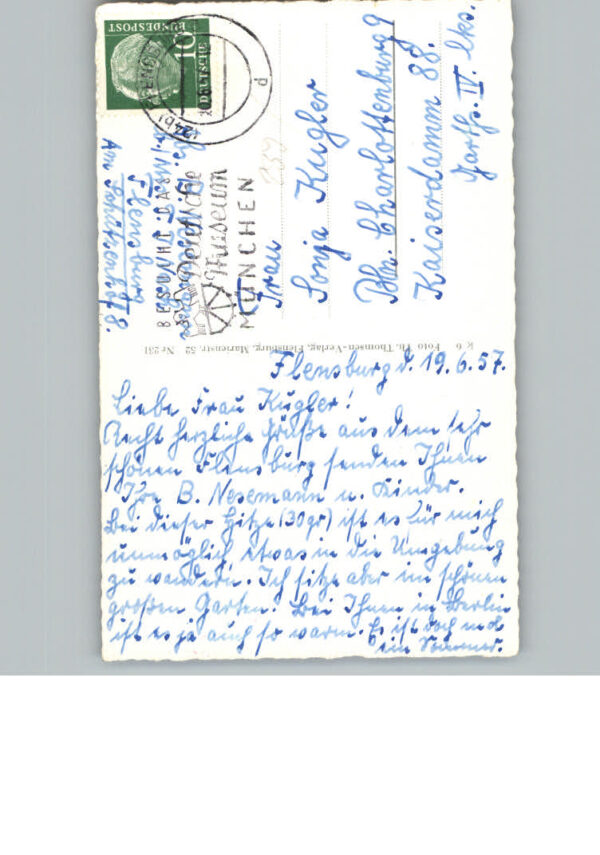 Flensburg d. 19.6.57.
Liebe Frau Kugler!
Recht herzliche Grüße aus dem sehr
schönen Flensburg senden Ihnen
Ihre B. Nesemann u. Kinder.
Bei dieser Hitze (30 gr) ist es für mich
unmöglich etwas in die Umgebung
zu wandern. Ich sitze aber im schönen
großen Garten. Bei Ihnen in Berlin
ist es ja auch so warm. Es ist doch mal
ein Sommer.
k 6 Foto Th. Thomsen-Verlag, Flensburg, Marienstr. 52 Nr 231
Frau
Sonja Kugler
Bln. Charlottenburg 9
Kaiserdamm 88.
Garth. IV. lks.
Flensburg
Am 8.
BESUCHT DAS
Deutsche
Museum
MÜNCHEN
DEUTSCHE
BUNDESPOST
10
d